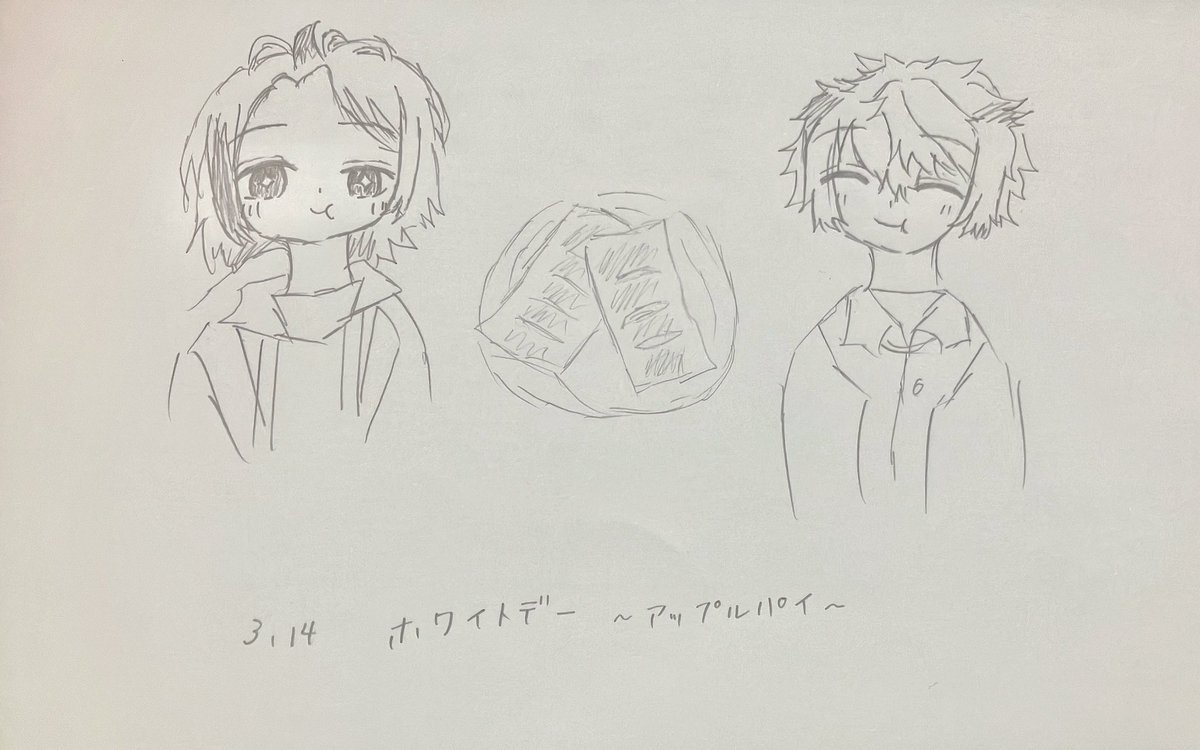 3.14 ホワイトデー ~アップルパイ~